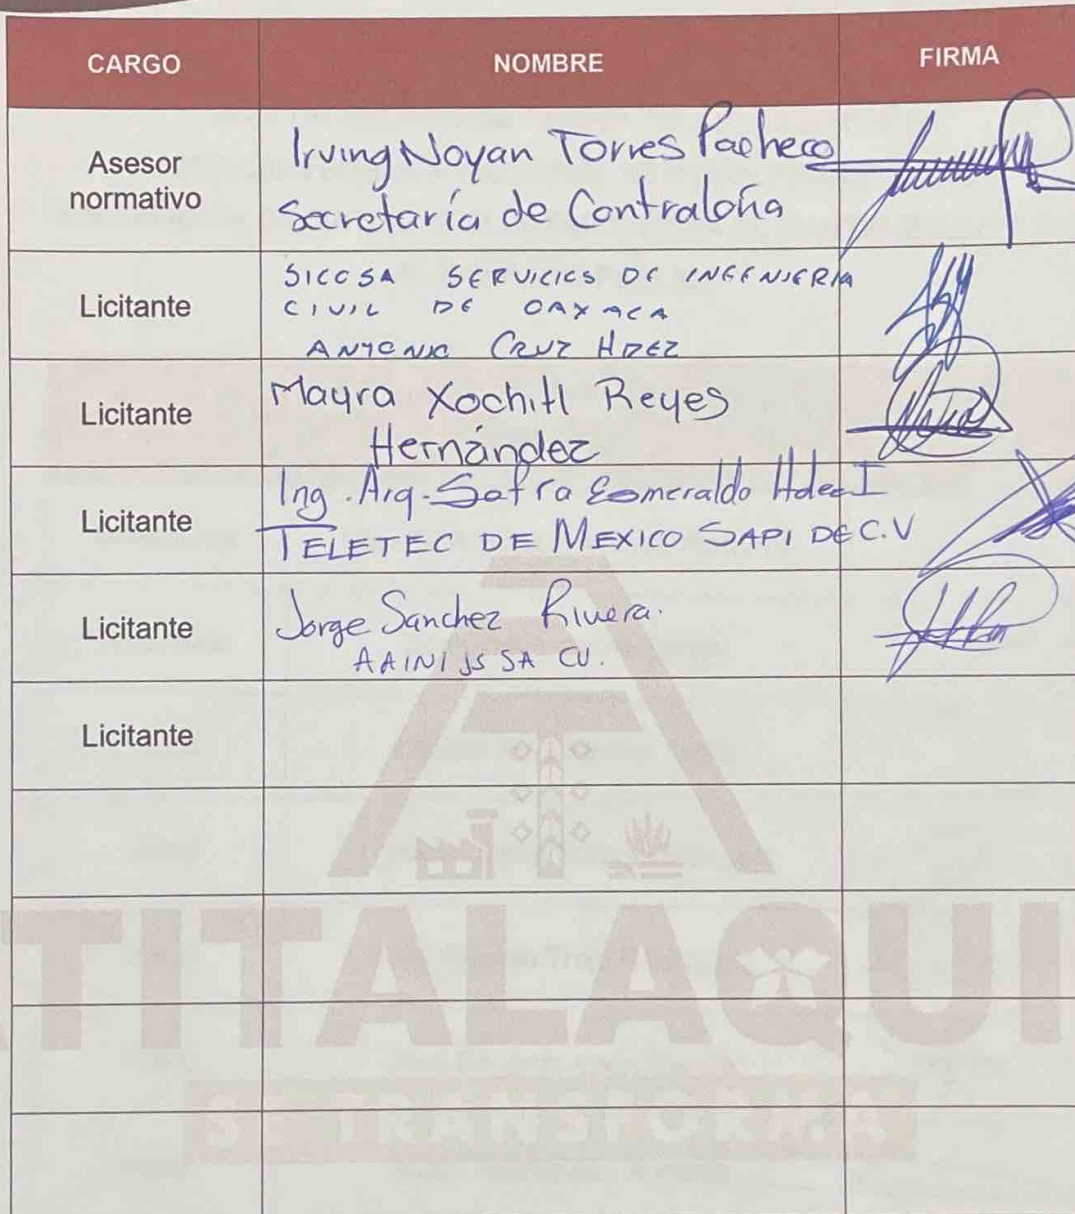 CARGO NOMBRE FIRMA
Asesor
normativo
Irving Noyan Torres Pacheco
Secretaría de Contraloría
Licitante
SICOSA SERVICIOS DE INGENIERIA
CIVIL DE OAXACA
ANTONIO CRUZ HDEZ
Licitante
Mayra Xochitl Reyes
Hernández
Licitante
Ing. Arq. Safra Esmeraldo Hdez I
TELETEC DE MEXICO SAPI DE C.V
Licitante
Jorge Sanchez Rivera.
AAINI JS SA CV.
Licitante
TITALAQUI
SE TRANSFORMA